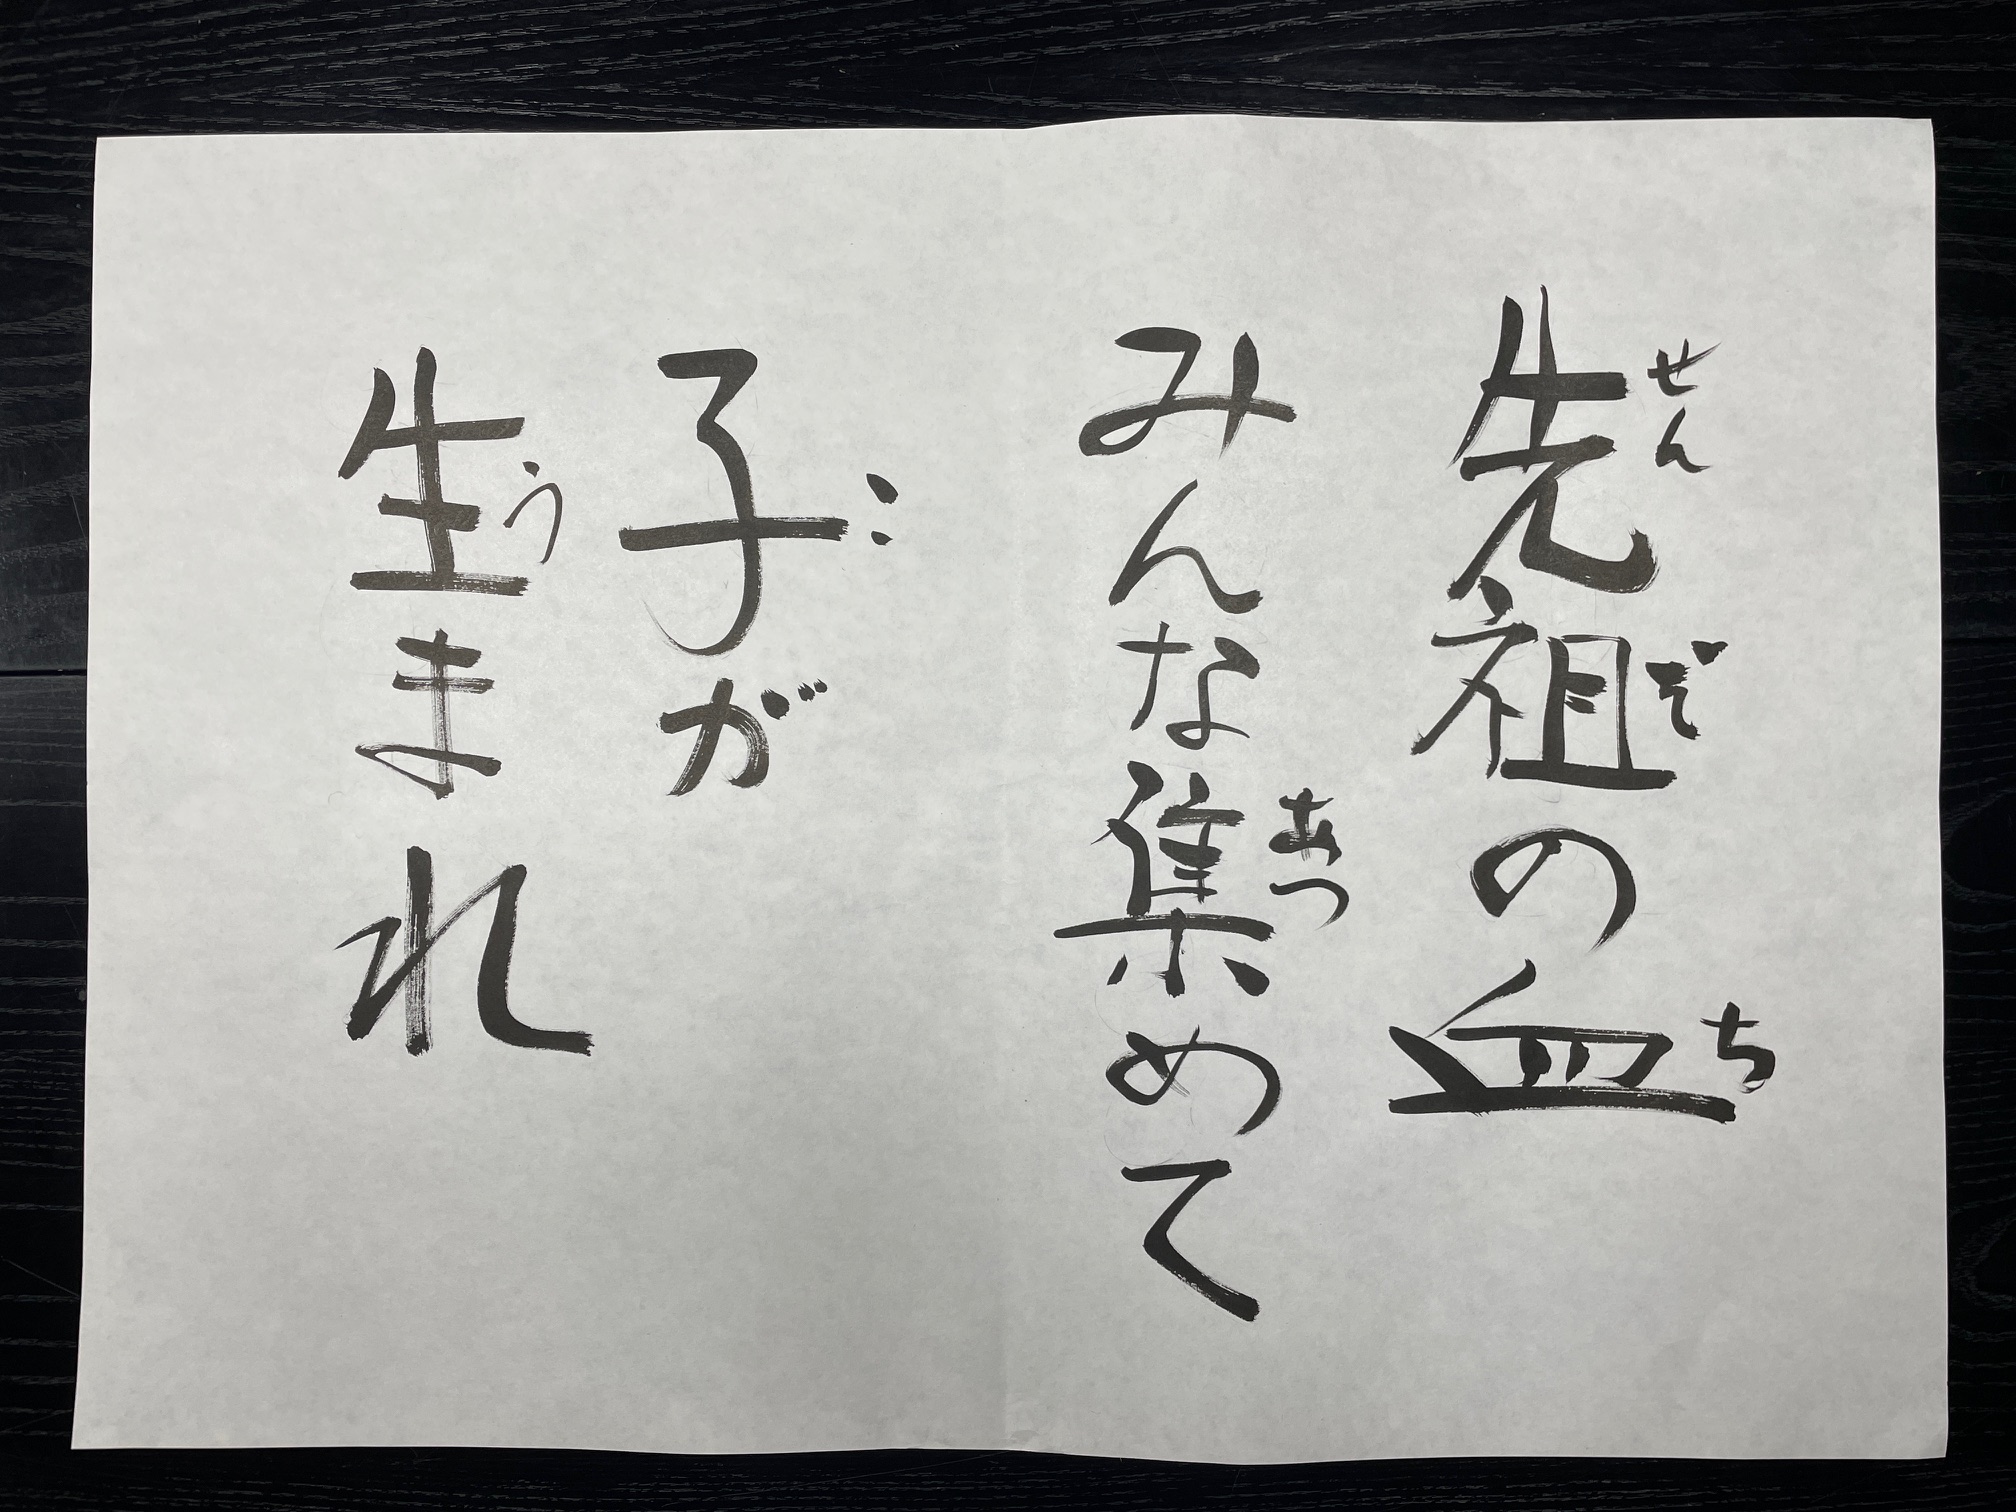 先祖の血
せんぞ ち
みんな集めて
あつ
子が
こ
生まれ
う